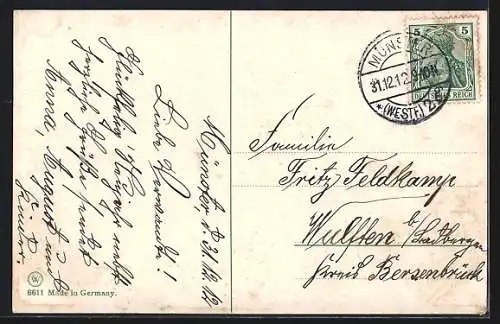 Münster, d. 31.12.12
Liebe Verwandte!
Glückliches Neujahr nebst
herzliche Grüße sendet
Anna, August und
Kinder.
6611 Made in Germany.
MÜNSTER
31.12.12. 9-10 V.
* (WESTF.) 2
5 5
REICH
Familie
Fritz Feldkamp
Wulften b/ Badbergen
Kreis Bersenbrück